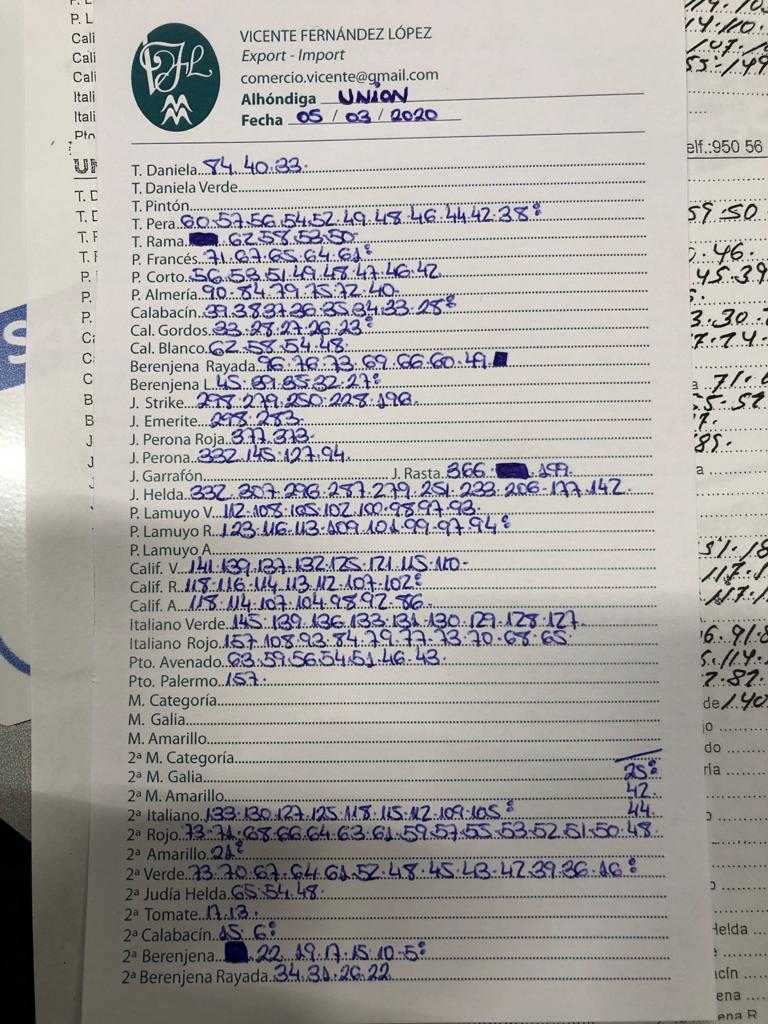 VICENTE FERNÁNDEZ LÓPEZ
Export - Import
comercio.vicente@gmail.com
Alhóndiga UNION
Fecha 05 / 03 / 2020
T. Daniela 84.40.33.
T. Daniela Verde
T. Pintón
T. Pera 60.57.56.54.52.49.48.46.44.42.38
T. Rama 62.58.53.50
P. Francés 71.67.65.64.61
P. Corto 56.53.51.49.48.47.46.42
P. Almería 90.84.79.75.72.40.
Calabacín 39.38.37.36.35.34.33.28
Cal. Gordos 33.28.27.26.23
Cal. Blanco 62.58.54.48.
Berenjena Rayada 96.76.73.69.66.60.49
Berenjena L 45.39.35.32.27
J. Strike 298.279.250.228.196
J. Emerite 298.283.
J. Perona Roja 377.373.
J. Perona 332.145.127.94.
J. Garrafón J. Rasta 366. 199.
J. Helda 332.307.296.287.279.251.233.206.177.142
P. Lamuyo V. 112.108.105.102.100.98.97.93.
P. Lamuyo R. 123.116.113.109.101.99.97.94
P. Lamuyo A.
Calif. V. 141.139.137.132.125.121.115.110.
Calif. R. 118.116.114.113.112.107.102
Calif. A. 118.114.107.104.98.92.86.
Italiano Verde 145.139.136.133.131.130.129.128.127
Italiano Rojo 157.108.93.84.79.77.73.70.68.65.
Pto. Avenado 63.59.56.54.51.46.43.
Pto. Palermo 157.
M. Categoría
M. Galia
M. Amarillo
2ª M. Categoría
2ª M. Galia 25
2ª M. Amarillo 42
2ª Italiano 133.130.127.125.118.115.112.109.105. 44
2ª Rojo 73.71.68.66.64.63.61.59.57.55.53.52.51.50.48
2ª Amarillo 21
2ª Verde 73.70.67.64.61.52.48.45.43.42.39.36.16
2ª Judía Helda 65.54.48.
2ª Tomate 17.13.
2ª Calabacín 15.6
2ª Berenjena 22.19.17.15.10.5
2ª Berenjena Rayada 34.31.26.22